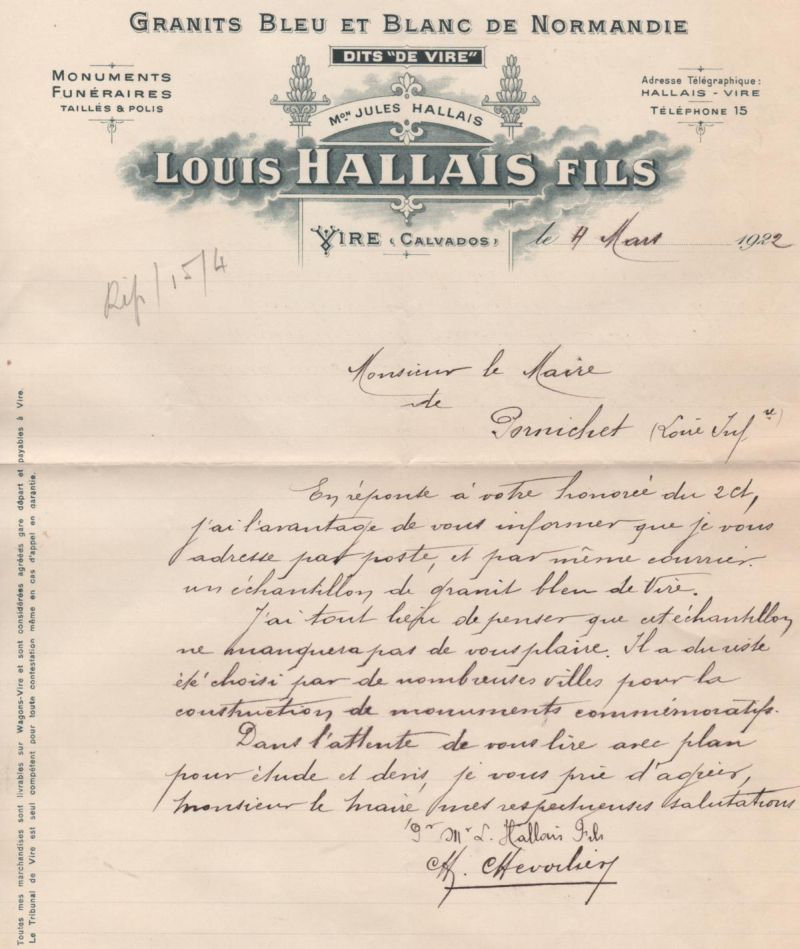 GRANITS BLEU ET BLANC DE NORMANDIE
DITS "DE VIRE"
MONUMENTS
FUNÉRAIRES
TAILLÉS & POLIS
Adresse Télégraphique:
HALLAIS - VIRE
TÉLÉPHONE 15
Mon JULES HALLAIS
LOUIS HALLAIS FILS
VIRE (CALVADOS)
le 4 Mars 1922
Rép/15/4
Monsieur le Maire
de
Pornichet (Loire Infre)
En réponse à votre honorée du 2 ct,
j'ai l'avantage de vous informer que je vous
adresse par poste, et par même courrier
un échantillon de granit bleu de Vire.
J'ai tout lieu de penser que cet échantillon
ne manquera pas de vous plaire. Il a du reste
été choisi par de nombreuses villes pour la
construction de monuments commémoratifs.
Dans l'attente de vous lire avec plan
pour étude et devis, je vous prie d'agréer,
monsieur le maire mes respectueuses salutations
Pr Mr L. Hallais Fils
Toutes mes marchandises sont livrables sur Wagons-Vire et sont considérées agréées gare départ et payables à Vire.
Le Tribunal de Vire est seul compétent pour toute contestation même en cas d'appel en garantie.